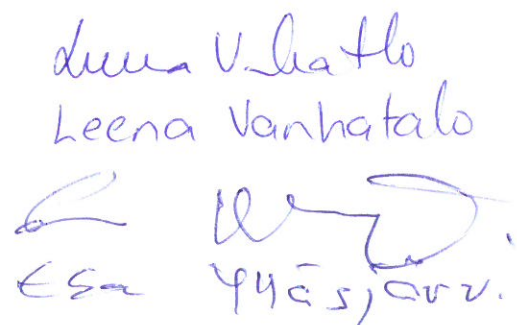 Leena Vanhatalo
Leena Vanhatalo
Esa Ylläsjärvi